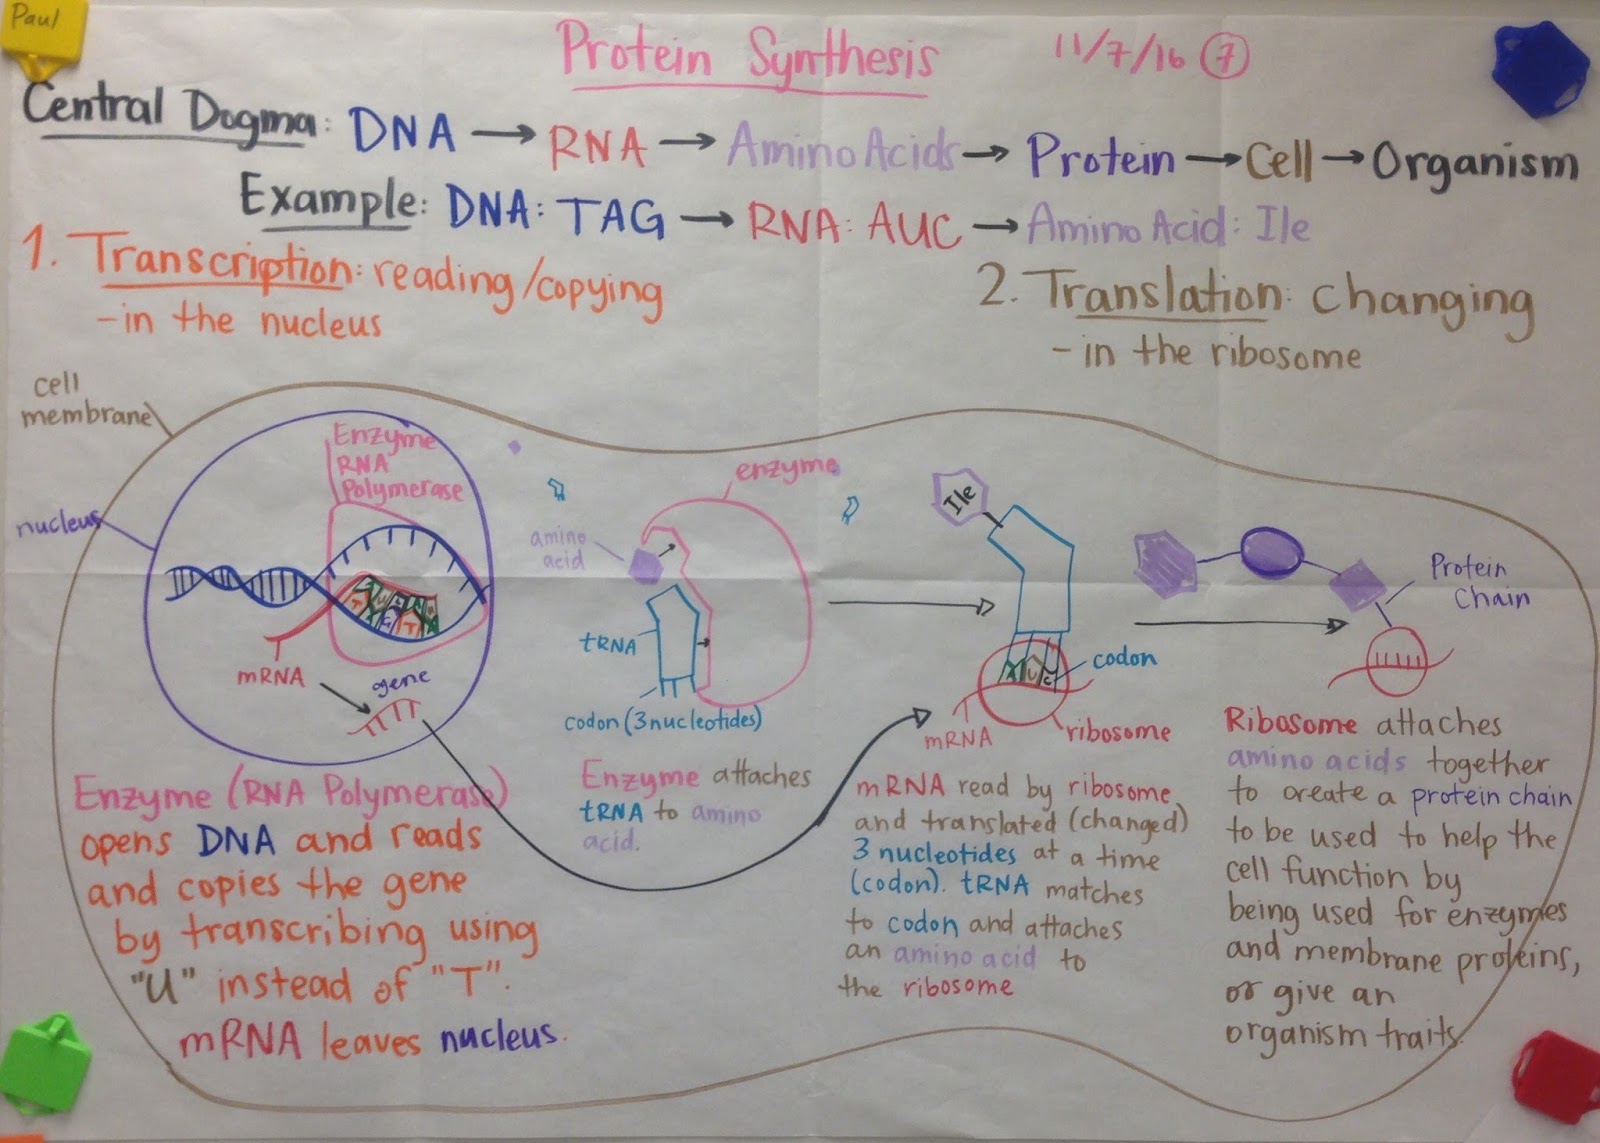 Paul
Protein Synthesis 11/7/16 7
Central Dogma: DNA → RNA → Amino Acids → Protein → Cell → Organism
Example: DNA: TAG → RNA: AUC → Amino Acid: Ile
1. Transcription: reading/copying
- in the nucleus
2. Translation: changing
- in the ribosome
cell
membrane
nucleus
Enzyme
RNA
Polymerase
mRNA
gene
amino
acid
enzyme
tRNA
codon (3 nucleotides)
Ile
A U C
codon
mRNA
ribosome
Protein
Chain
Enzyme (RNA Polymerase)
opens DNA and reads
and copies the gene
by transcribing using
"U" instead of "T".
mRNA leaves nucleus.
Enzyme attaches
tRNA to amino
acid.
mRNA read by ribosome
and translated (changed)
3 nucleotides at a time
(codon). tRNA matches
to codon and attaches
an amino acid to
the ribosome
Ribosome attaches
amino acids together
to create a protein chain
to be used to help the
cell function by
being used for enzymes
and membrane proteins,
or give an
organism traits.